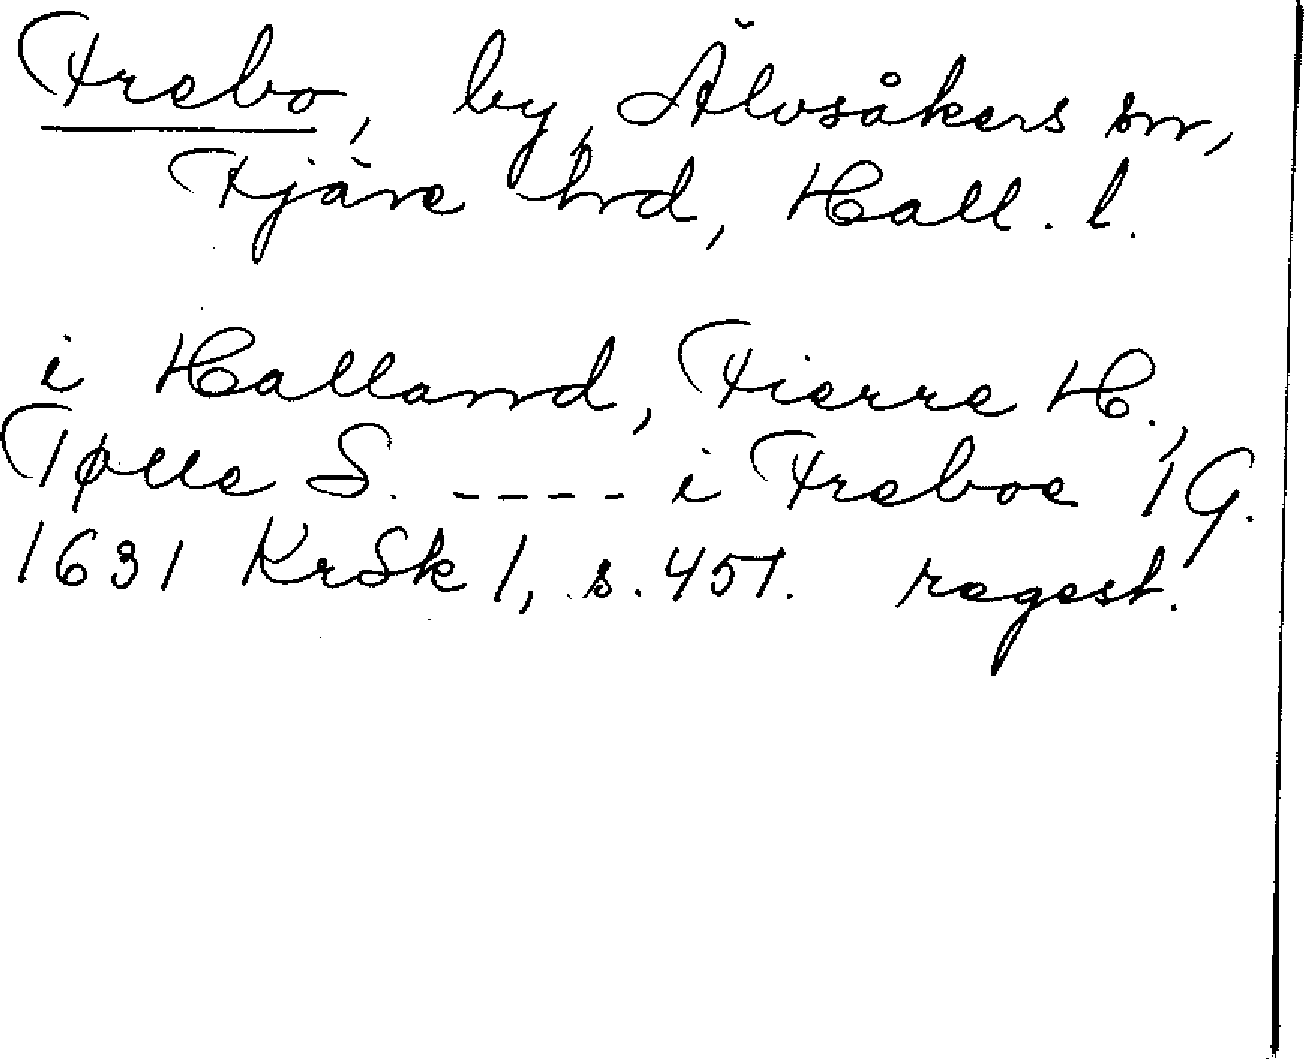 Frebo, by, Älvsåkers sn,
Fjäre hrd, Hall. l.
i Halland, Fierre H.,
Tølle S. ---- i Freboe 1 G.
1631 KrSk 1, s. 451. regest.